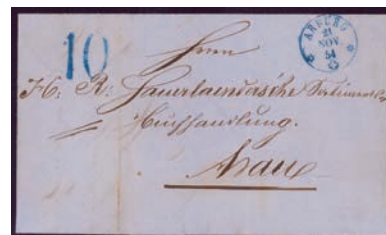 10
AARBURG
21
NOV
54
Herrn
H. R. Sauerländersche Sortiments
Buchhandlung.
Aarau